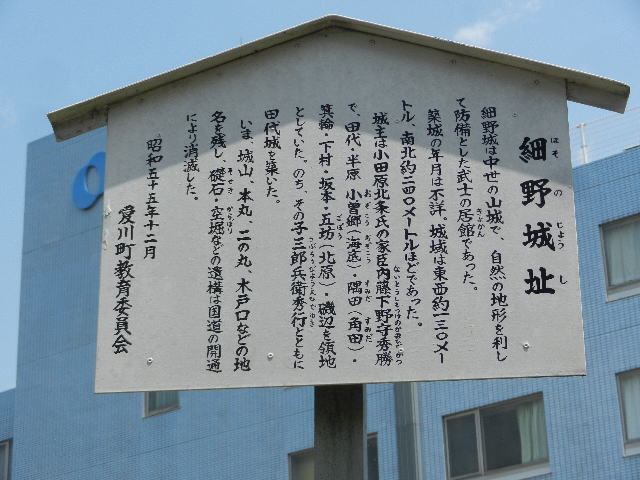 細野城址
細野城は中世の山城で、自然の地形を利し
て防備とした武士の居館であった。
築城の年月は不詳。城域は東西約一三〇メー
トル、南北約二四〇メートルほどであった。
城主は小田原北条氏の家臣内藤下野守秀勝
で、田代、半原、小曽郷(海底)・隅田(角田)・
箕輪・下村・坂本・五坊(北原)・磯辺を領地
としていた。のち、その子三郎兵衛秀行とともに
田代城を築いた。
いま、城山、本丸、二の丸、木戸口などの地
名を残し、礎石・空堀などの遺構は国道の開通
により消滅した。
昭和五十五年十二月
愛川町教育委員会